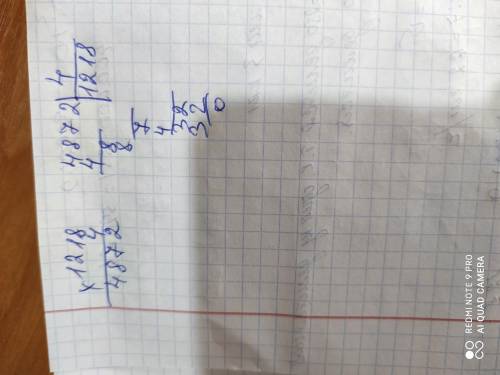 4872|4
4 |1218
8
8
7
4
32
32
0
x1218
4
4872
REDMI NOTE 9 PRO
AI QUAD CAMERA